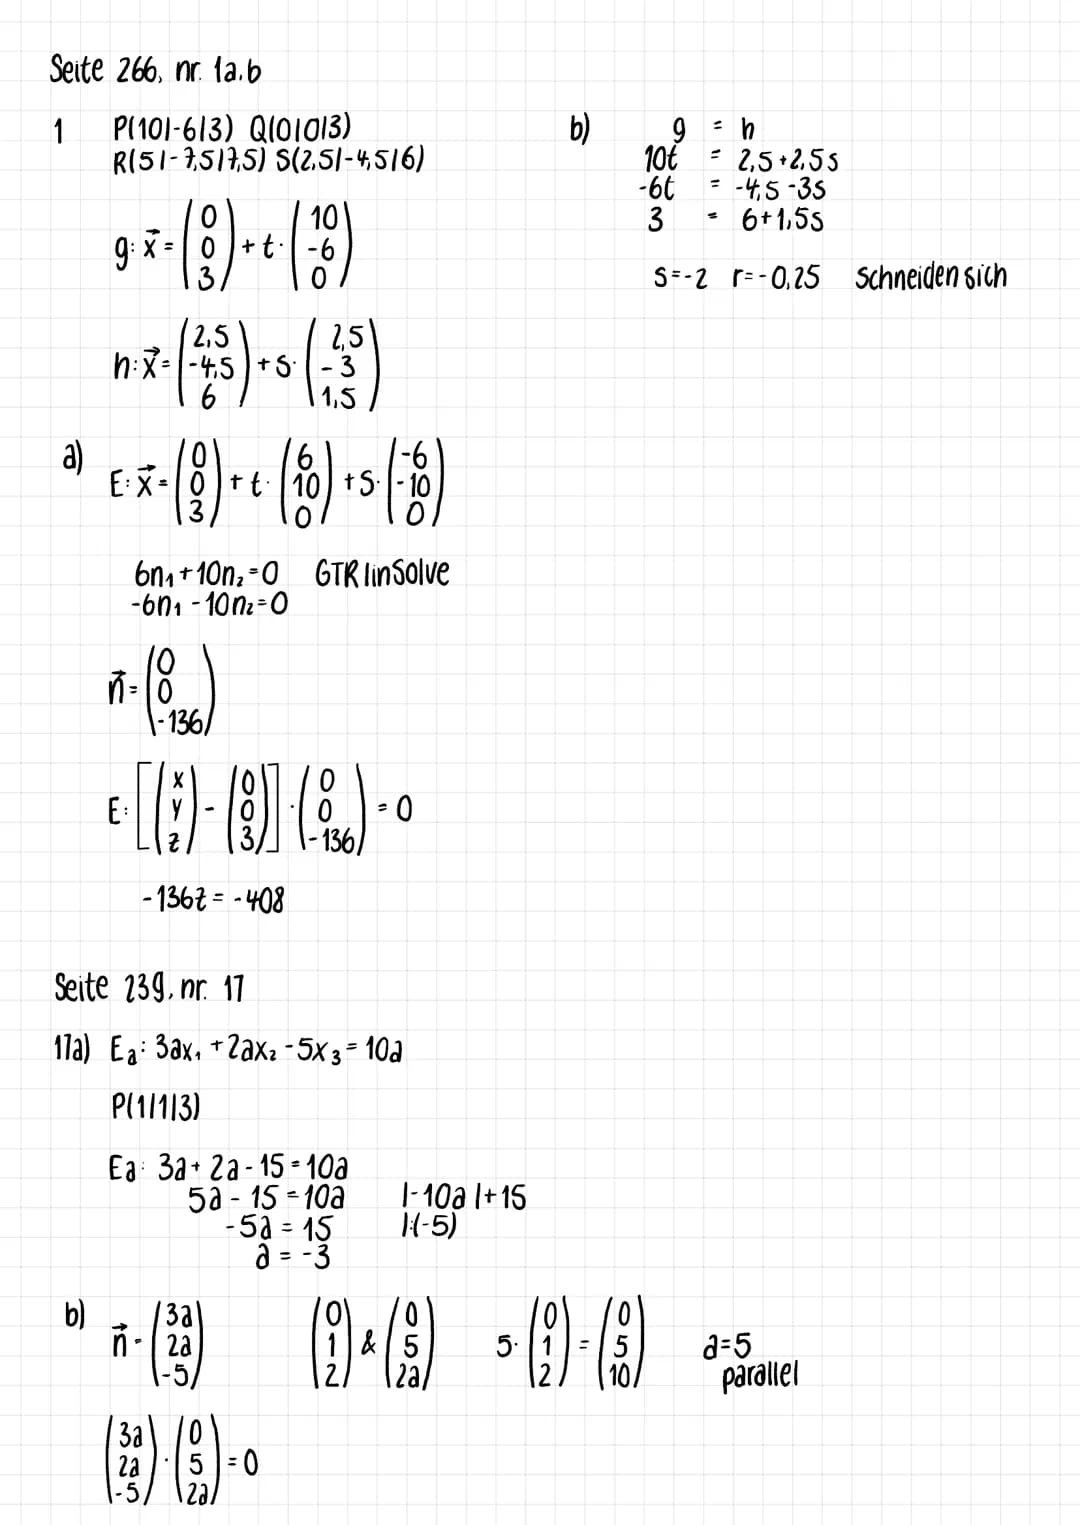 Seite 266, nr. 1a.b
1 P(10|-6|3) Q(0|0|3)
R(5|-7,5|7,5) S(2,5|-4,5|6)
g: x⃗ = (0 0 3) + t · (10 -6 0)
h: x⃗ = (2,5 -4,5 6) + s · (2,5 -3 1,5)
a) E: x⃗ = (0 0 3) + t · (6 10 0) + s · (-6 -10 0)
6n₁ + 10n₂ = 0 GTR linSolve
-6n₁ - 10n₂ = 0
n⃗ = (0 0 -136)
E: [(x y z) - (0 0 3)] · (0 0 -136) = 0
-136z = -408
b) g = h
10t = 2,5 + 2,5s
-6t = -4,5 - 3s
3 = 6 + 1,5s
s = -2 r = -0,25 Schneiden sich
Seite 239, nr. 17
17a) Ea: 3ax₁ + 2ax₂ - 5x₃ = 10a
P(1|1|3)
Ea: 3a + 2a - 15 = 10a
5a - 15 = 10a |-10a |+15
-5a = 15 |:(-5)
a = -3
b) n⃗ = (3a 2a -5) (0 1 2) & (0 5 2a) 5 · (0 1 2) = (0 5 10) a=5
parallel
(3a 2a -5) · (0 5 2a) = 0